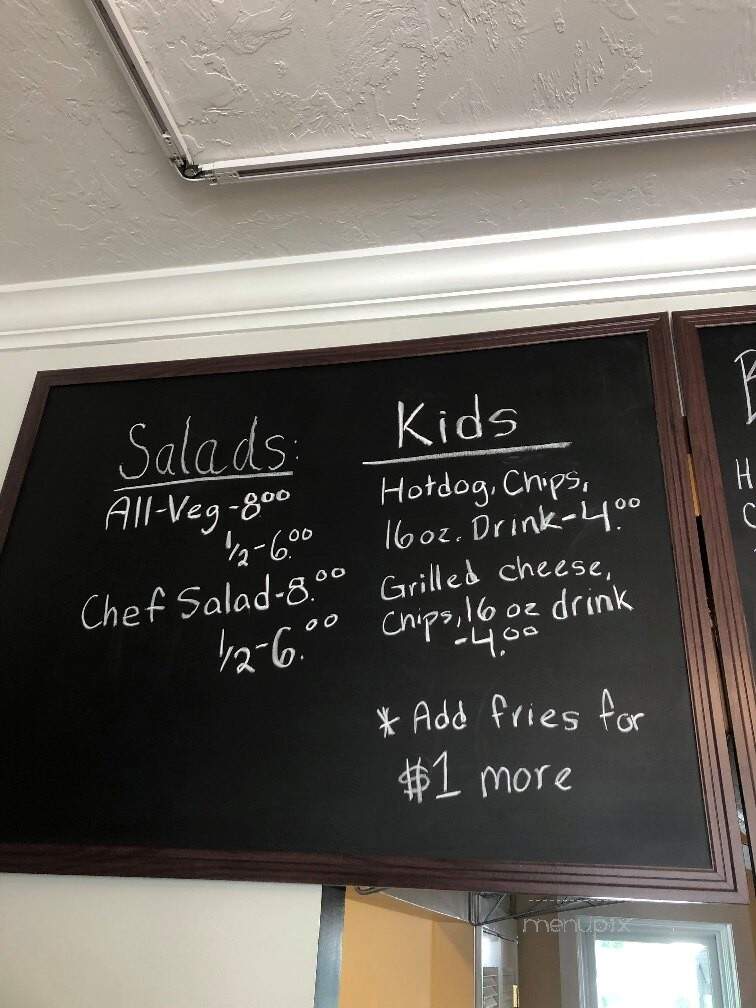 Salads:
All-Veg-8⁰⁰
½-6.⁰⁰
Chef Salad-8.⁰⁰
½-6.⁰⁰
Kids
Hotdog, Chips,
16oz. Drink-4.⁰⁰
Grilled cheese,
Chips, 16 oz drink
-4.⁰⁰
* Add fries for
$1 more
menupix